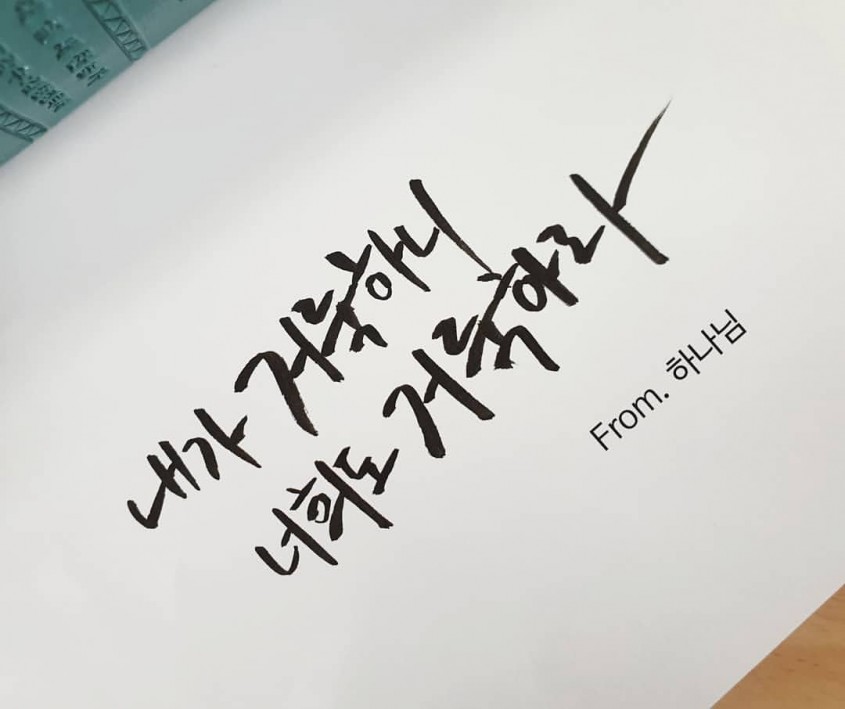 내가 거룩하니
너희도 거룩하라
From. 하나님